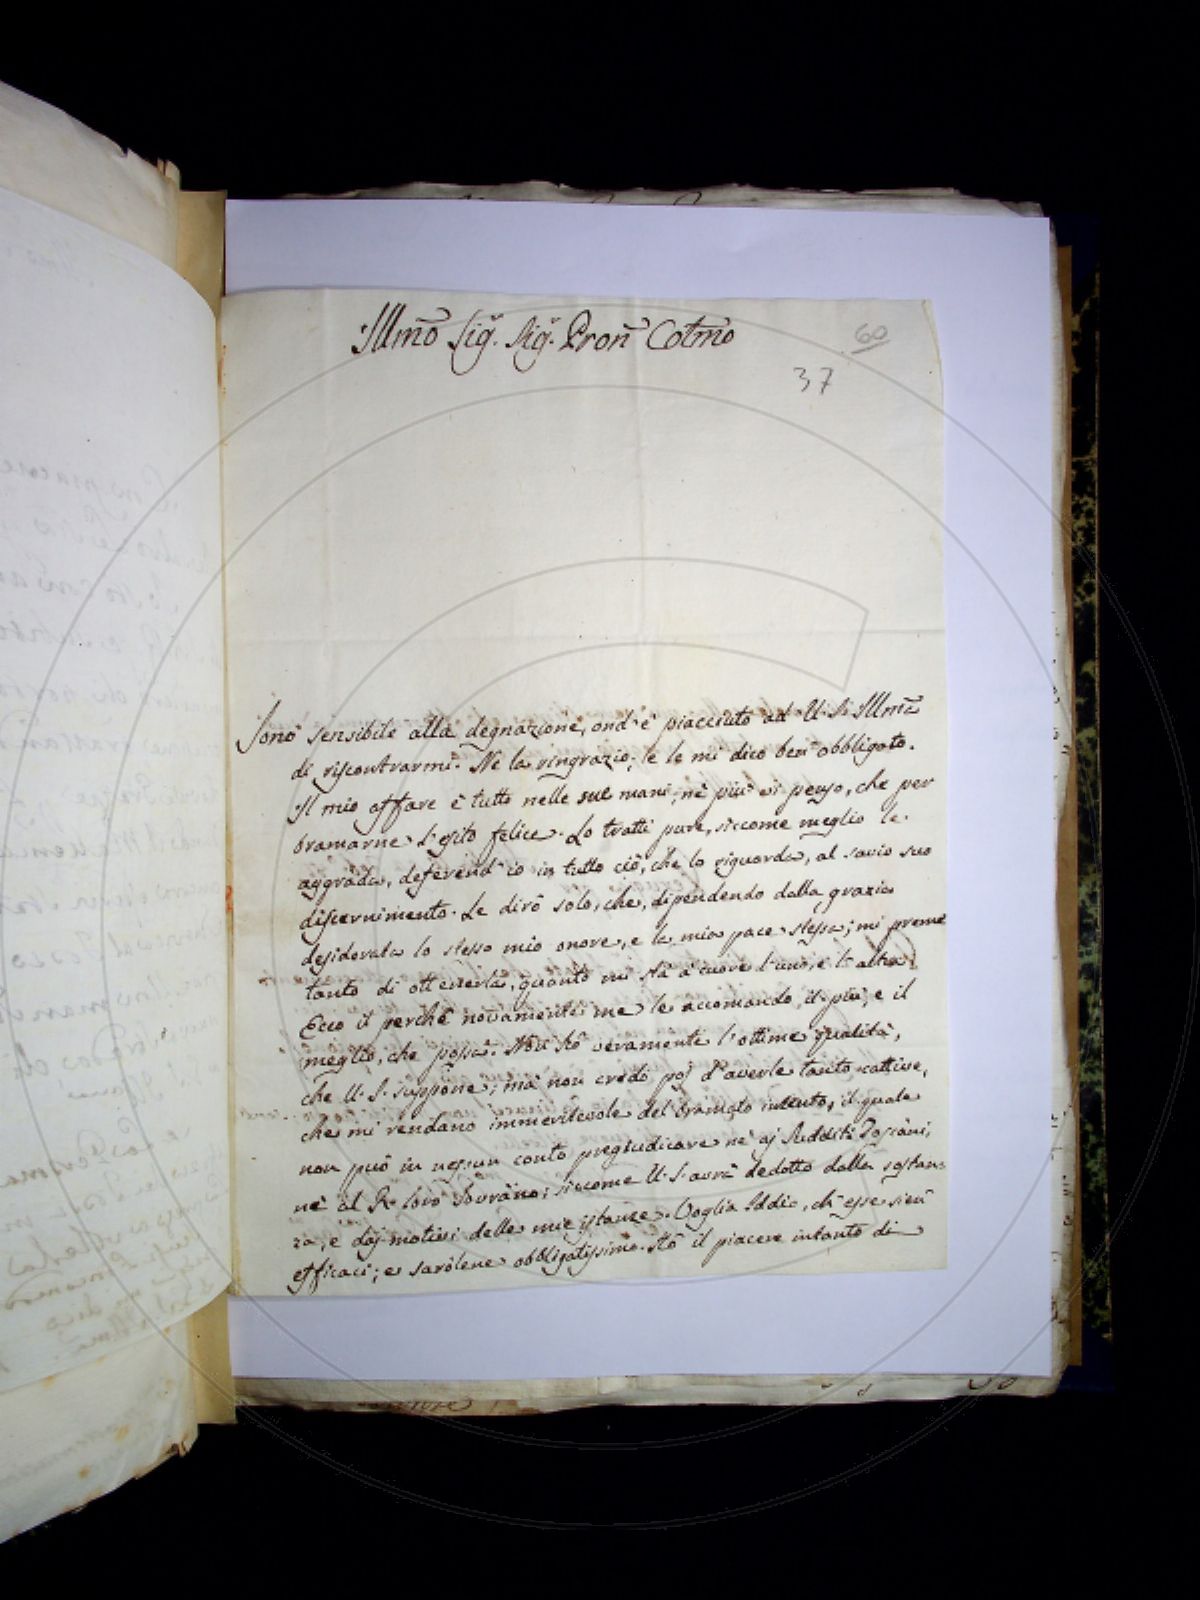 Illmõ Sig.r Sig.r Pron~ Colmõ
60
37
Sono sensibile alla degnazione, ond'è piacciuto ad U. S. Illmã
di riscontrarmi. Ne la ringrazio; e le mi dico ben obbligato.
Il mio affare è tutto nelle sue mani; nè più vi penso, che per
bramarne l'esito felice. Lo tratti pure, siccome meglio le
aggrada, deferend' io in tutto ciò, che lo riguarda, al savio suo
discernimento. Le dirò solo, che, dipendendo dalla grazia
desiderata lo stesso mio onore, e la mia pace stessa; mi preme
tanto di ottenerla, quanto mi stà à cuore l'uno, e l'altra.
Ecco il perchè novamente me le accomando il più, e il
meglio, che possa. Non hò veramente l'ottime qualità,
che U. S. suppone; mà non credo poj d'averle tanto cattive,
che mi rendano immeritevole del bramato intento, il quale
non può in nessun conto pregiudicare nè aj Sudditi
nè al Re loro Sovrano; siccome U. S. avrà dedotto dalla sostan-
za, e daj motivi delle mie istanze. Voglia Iddio, ch' esse sien
efficaci; e saròlene obbligatissimo. Hò il piacere intanto di